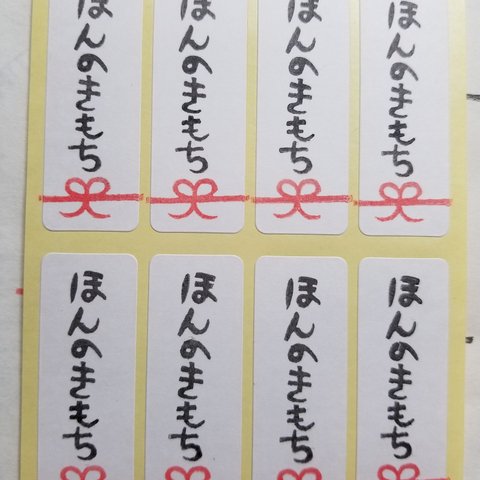 ほんのきもち
ほんのきもち
ほんのきもち
ほんのきもち
ほんのきもち
ほんのきもち
ほんのきもち
ほんのきもち